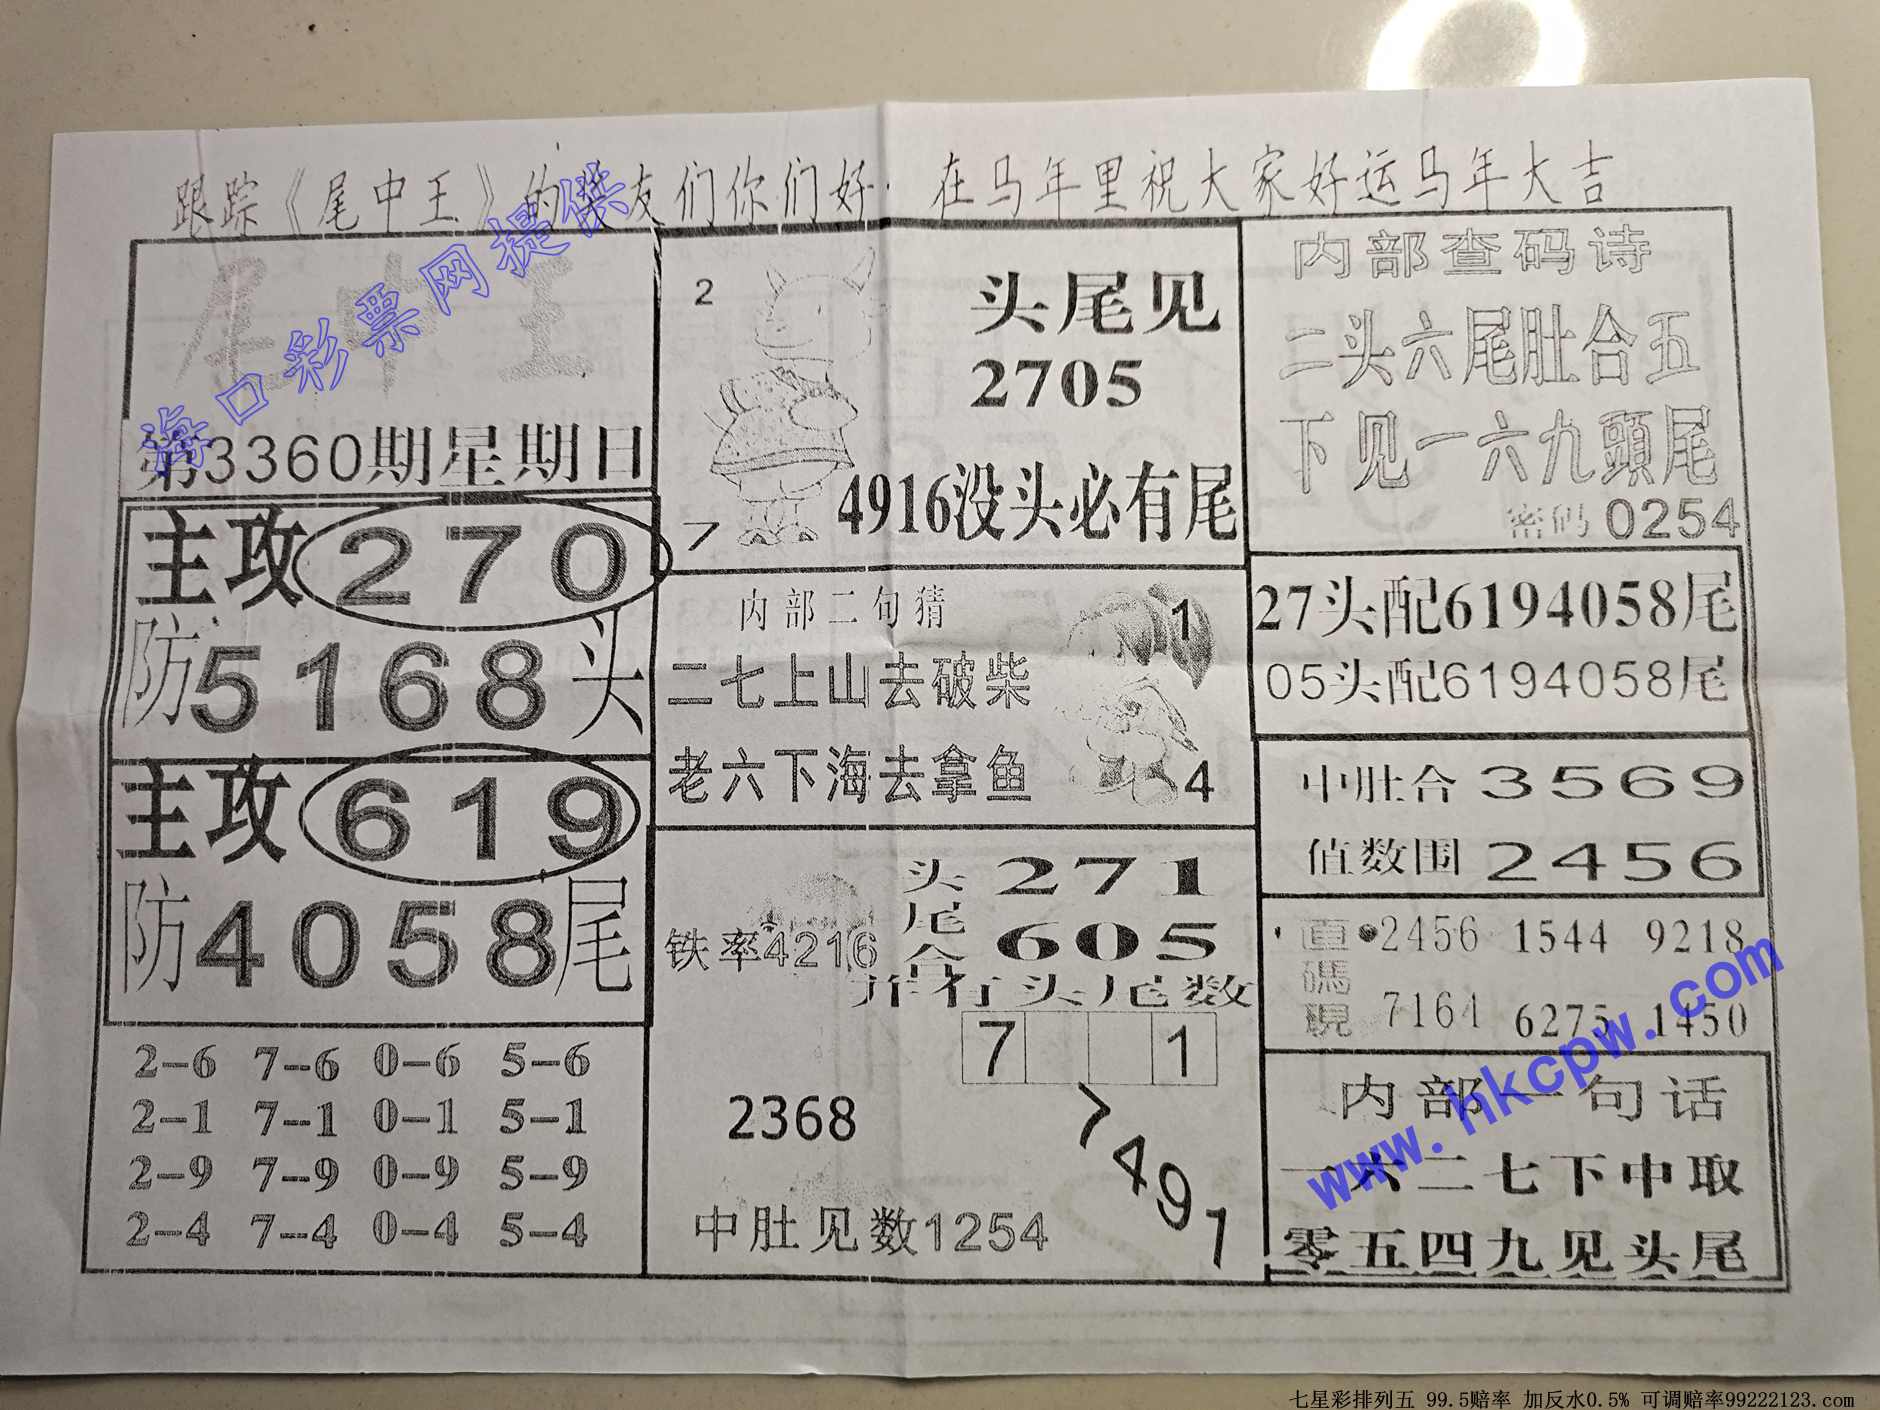 跟踪《尾中王》的柴友们你们好·在马年里祝大家好运马年大吉
尾中王
海口彩票网提供
第3360期星期日
主攻270
防5168头
主攻619
防4058尾
2-6 7-6 0-6 5-6
2-1 7-1 0-1 5-1
2-9 7-9 0-9 5-9
2-4 7-4 0-4 5-4
2
头尾见
2705
4916没头必有尾
7
内部二句猜
1
二七上山去破柴
老六下海去拿鱼
4
头尾合
271
605
铁率4216
并有头尾数
7 1
2368
7491
中肚见数1254
内部查码诗
二头六尾肚合五
下见一六九頭尾
密码0254
27头配6194058尾
05头配6194058尾
中肚合3569
值数围2456
直碼現
2456 1544 9218
7164 6275 1450
www.hkcpw.com
内部一句话
一六二七下中取
零五四九见头尾
七星彩排列五 99.5赔率 加反水0.5% 可调赔率99222123.com